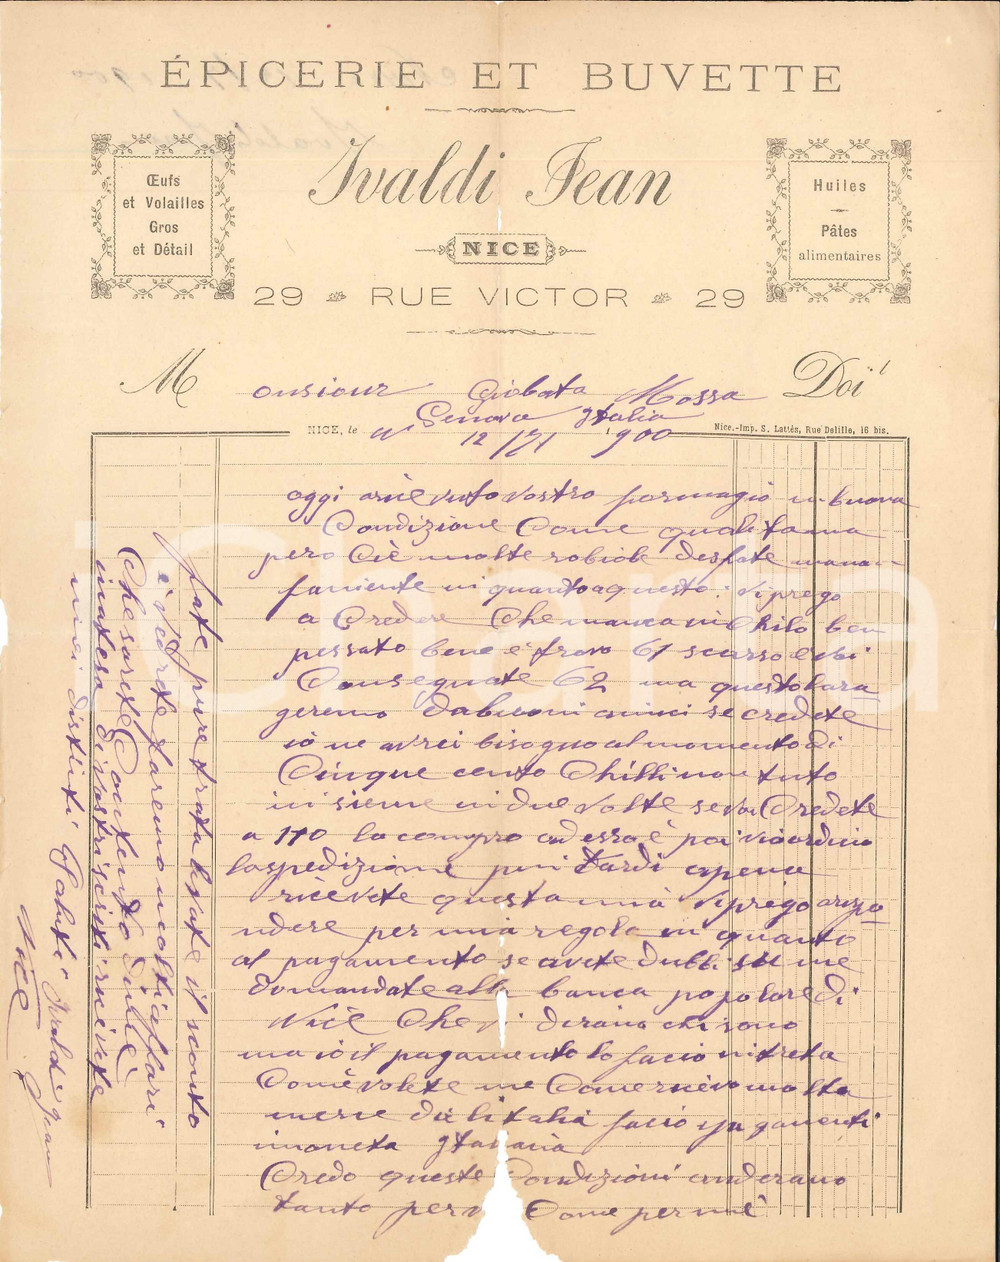 ÉPICERIE ET BUVETTE
Œufs
et Volailles
Gros
et Détail
Ivaldi Jean
NICE
29 RUE VICTOR 29
Huiles
Pâtes
alimentaires
Monsieur Giobata Mossa Doit
Genova Italia
NICE, le 12/71 1900
Nice.-Imp. S. Lattès, Rue Delille, 16 bis.
oggi o ricevuto vostro formagio in buona
Condizione Come qualita ma
pero Cié molte robiole desfate
in quanto a questo vi prego
a Credere Che manca Chilo ben
pessato bene e trovo 61 scarso e voi
Consegnate 62 ma questo lara
geremo da buoni amici se credete
io ne avrei bisogno al momento di
Cinque cento Chilli non tuto
in sieme in due volte se voi Credete
a 110 la compro adesso è poi vi ordino
la spedizione piu tardi apena
ricevete questa mia vi prego arispo
ndere per mia regola in quanto
al pagamento se avete dubbi su me
domandate alla banca popolare di
Nice Che vi dirano chi sono
ma io il pagamento lo facio
Come volete me Come ricevo molta
merce dal litalia facio i pagamenti
in moneta Itariana
Credo queste Condizioni anderano
tanto per voi Come per me
fate pure trata levate il sconto
e vedrete faremo molti affari
Che sarete Contento di me
in atesa di vostri scritti riceivete
miei distinti Saluti Ivaldi Jean
Nice